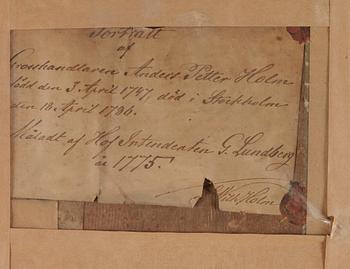 Porträtt
af
Grosshandlaren Anders Petter Holm
född den 3 April 1747, död i Stockholm
den 18 April 1786.
Måladt af Hof Intendenten G. Lundberg
år 1775.
Holm